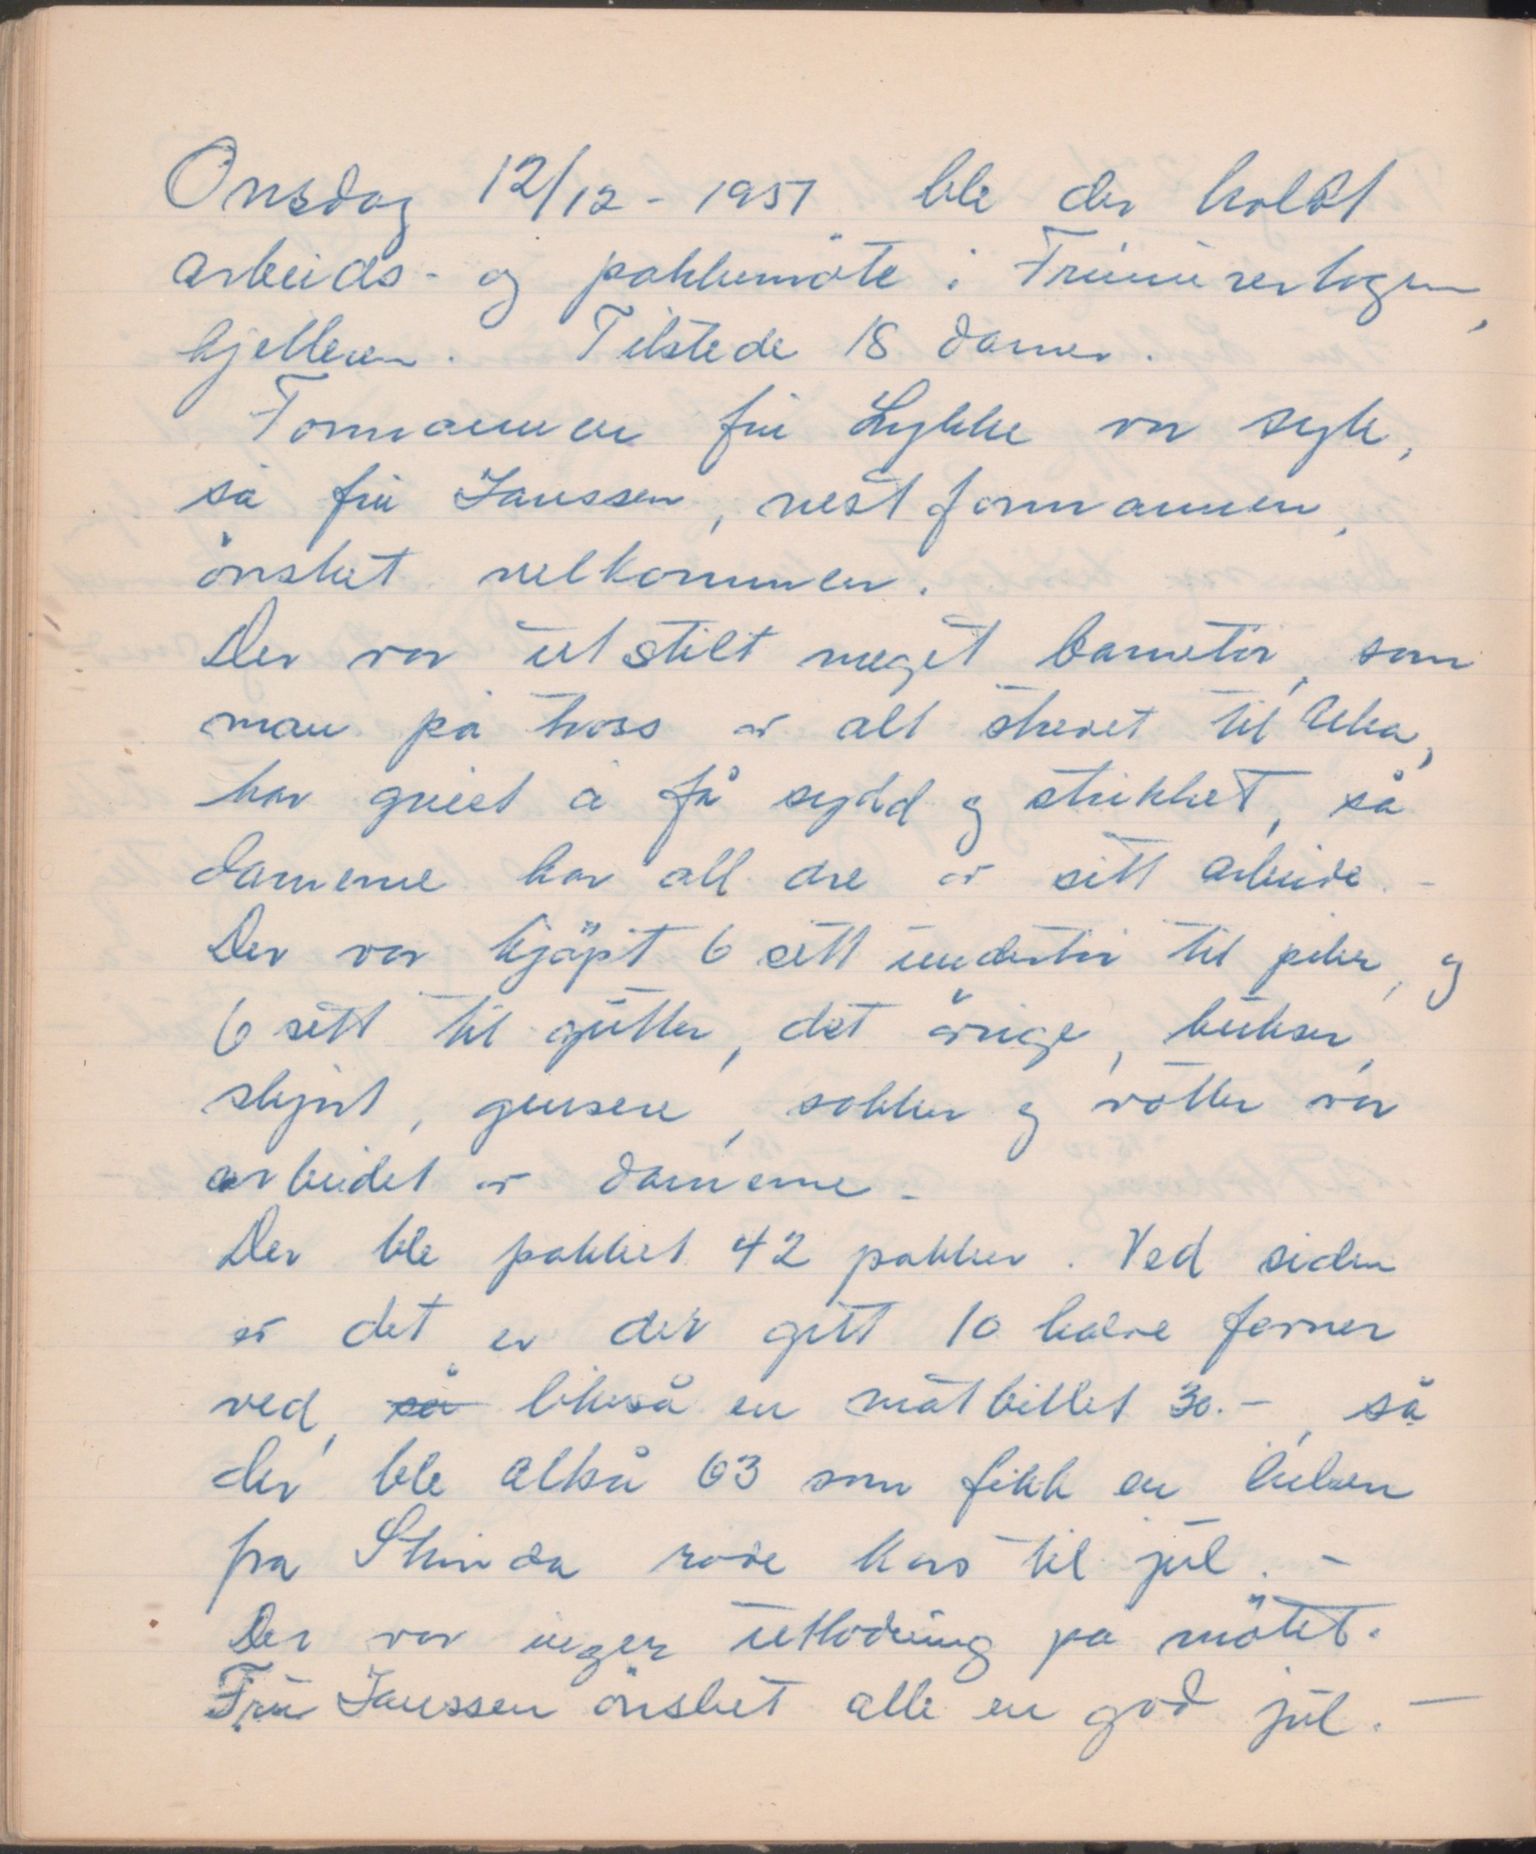 Onsdag 12/12 - 1951 ble der holdt
arbeids- og pakkemöte i Frimurerlogen,
kjelleren. Tilstede 18 damer.
Formannen fru Lykke var syk,
så fru Janssen, nestformannen,
önsket velkommen.
Der var utstilt meget barnetöi, som
man på tross av alt strevet til Uka,
har greiet å få sydd og strikket, så
damerne har all ære av sitt arbeide. -
Der var kjöpt 6 sett undertöi til piker, og
6 sett til gutter, det övrige, bukser,
skjört, gensere, sokker og votter var
arbeidet av damerne -
Der ble pakket 42 pakker. Ved siden
av det er der gitt 10 halve favner
ved, så likeså en matbillet 30.-, så
der ble altså 63 som fikk en hilsen
fra Strinda röde kors til jul. -
Der var ingen utlodning på mötet.
Fru Janssen önsket alle en god jul. -